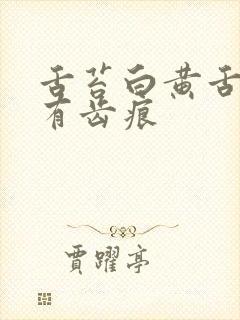 舌苔白黄舌
有齿痕
贾躍亭